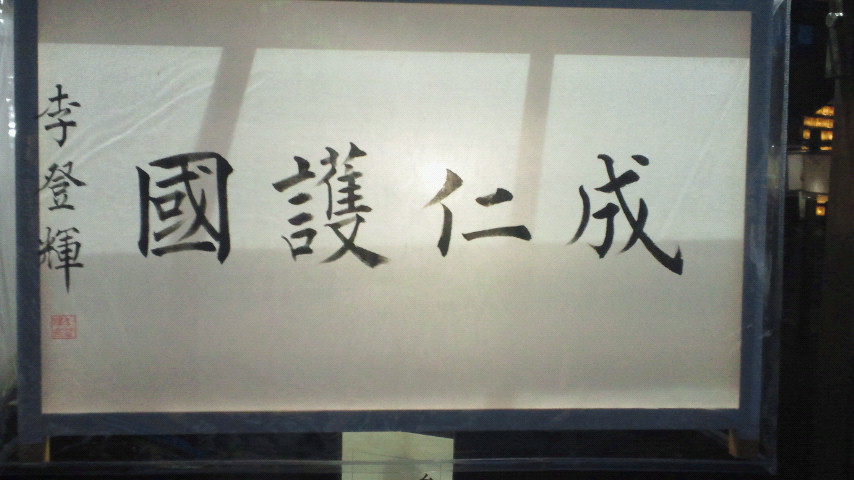 成仁護國
李登輝